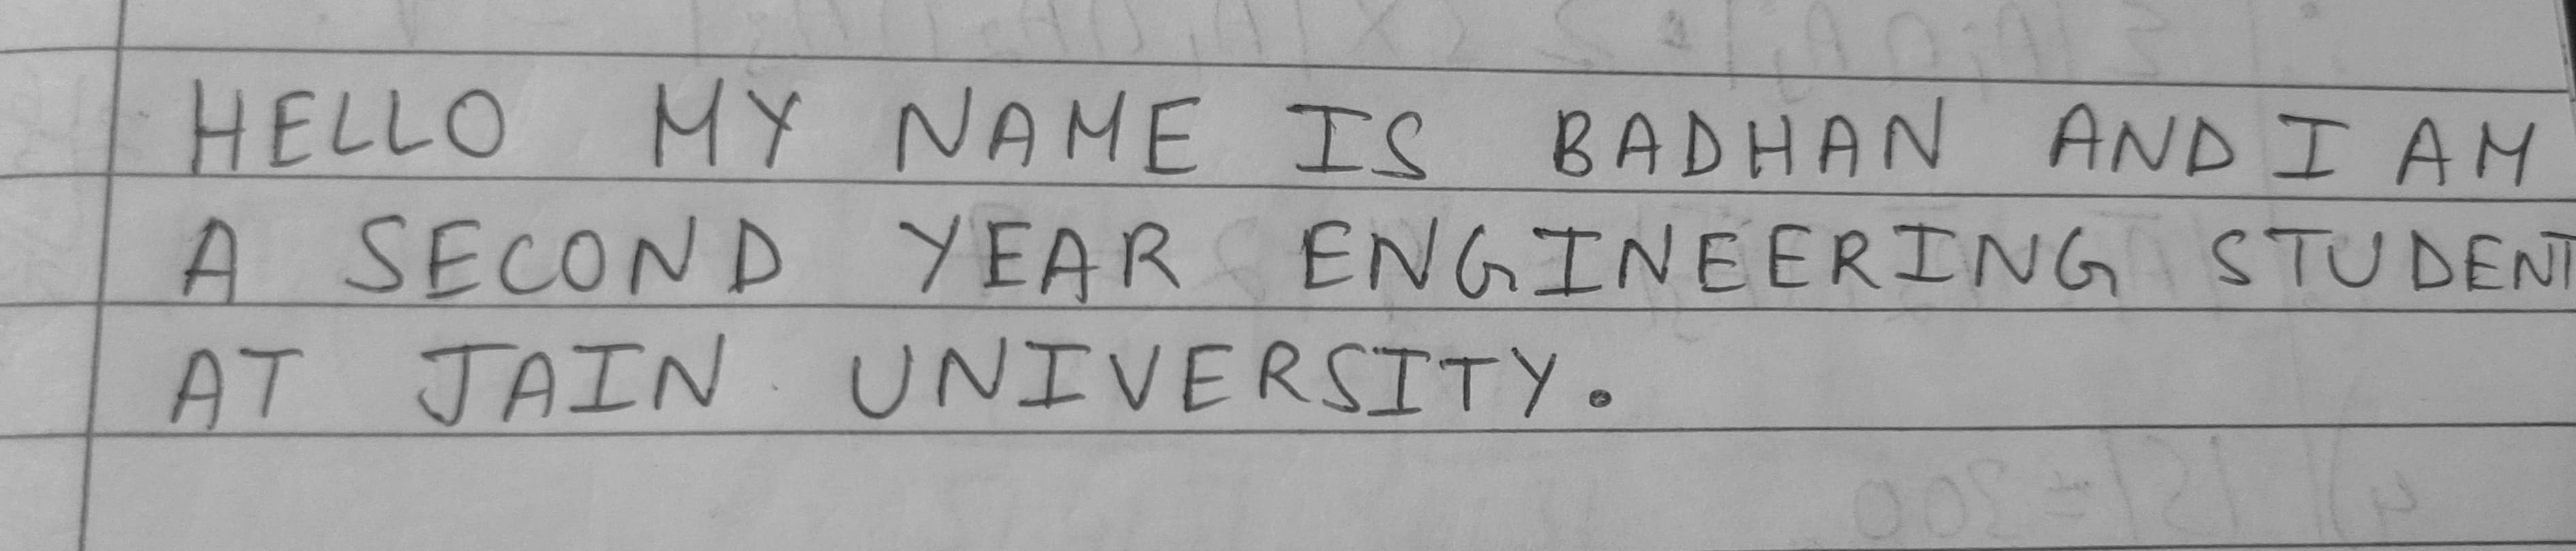 HELLO MY NAME IS BADHAN AND I AM
A SECOND YEAR ENGINEERING STUDENT
AT JAIN UNIVERSITY.